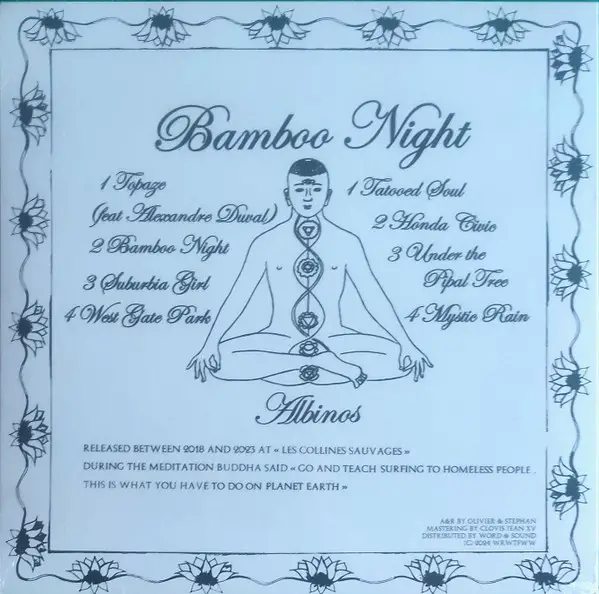 Bamboo Night
1 Topaze
(feat Alexandre Duval)
2 Bamboo Night
3 Suburbia Girl
4 West Gate Park
1 Tatooed Soul
2 Honda Civic
3 Under the
Pipal Tree
4 Mystic Rain
Albinos
RELEASED BETWEEN 2018 AND 2023 AT « LES COLLINES SAUVAGES »
DURING THE MEDITATION BUDDHA SAID « GO AND TEACH SURFING TO HOMELESS PEOPLE .
THIS IS WHAT YOU HAVE TO DO ON PLANET EARTH »
A&R BY OLIVIER & STEPHAN
MASTERING BY CLOVIS JEAN XV
DISTRIBUTED BY WORD & SOUND
(C) 2024 WRWTFWW